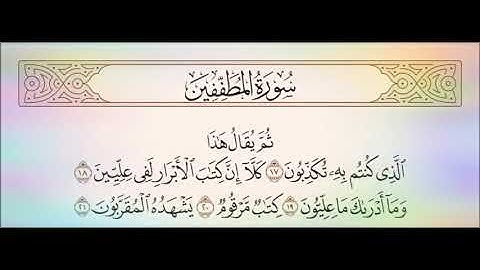 سُورَةُ المُطَفِّفِينَ
ثُمَّ يُقَالُ هَٰذَا
الَّذِي كُنتُم بِهِۦ تُكَذِّبُونَ ١٧ كَلَّآ إِنَّ كِتَٰبَ الْأَبْرَارِ لَفِي عِلِّيِّينَ ١٨
وَمَآ أَدْرَىٰكَ مَا عِلِّيُّونَ ١٩ كِتَٰبٌ مَّرْقُومٌ ٢٠ يَشْهَدُهُ الْمُقَرَّبُونَ ٢١